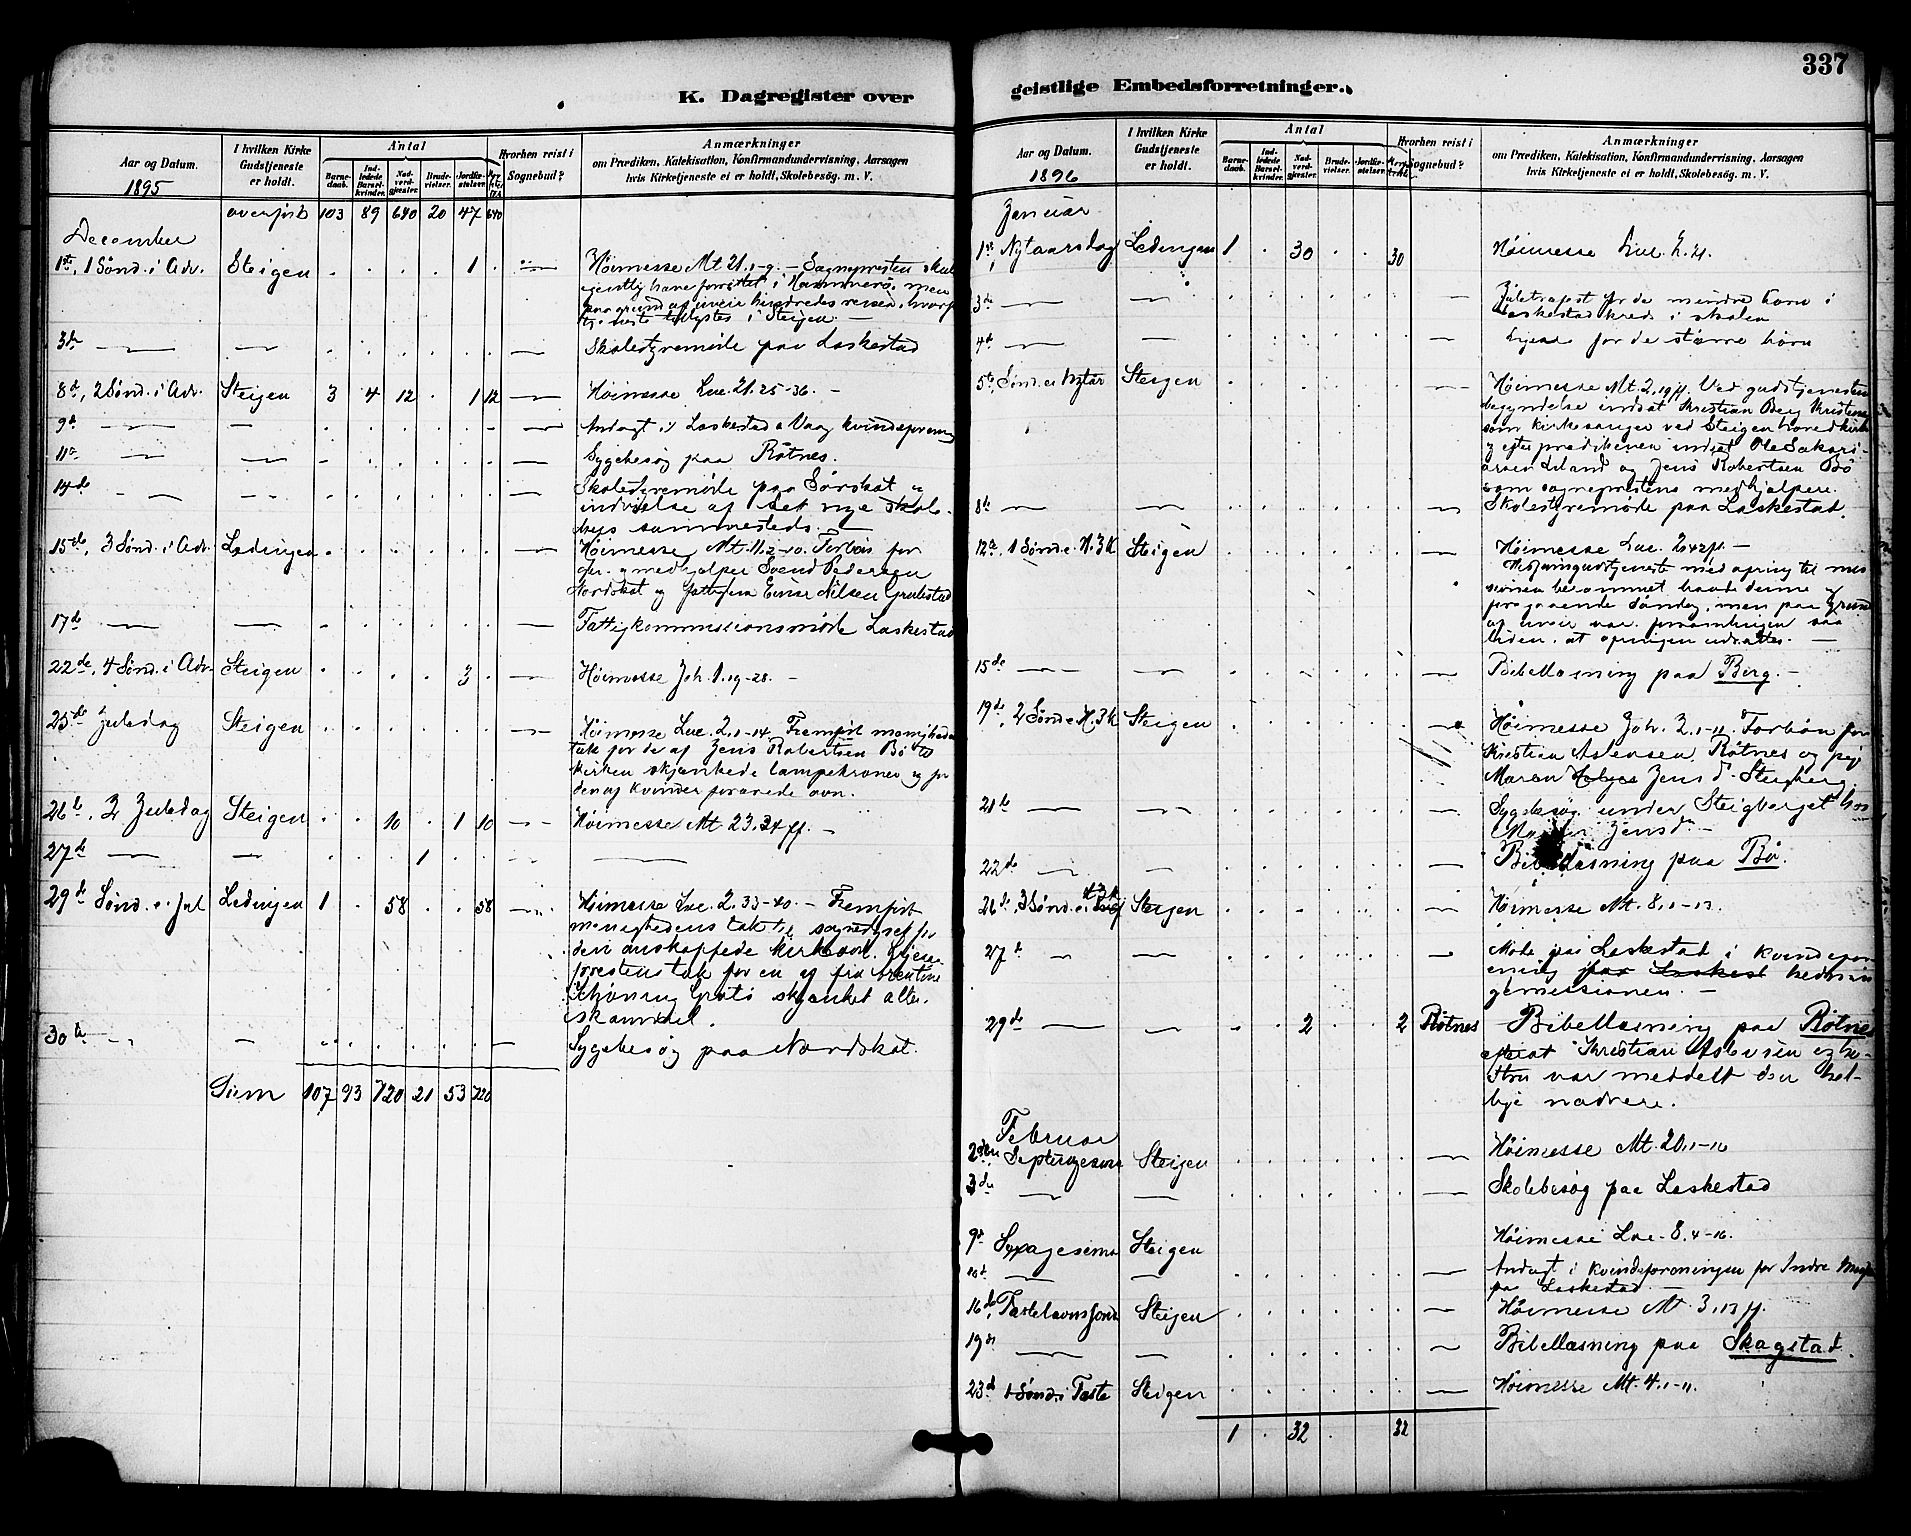 337
K. Dagregister over
Aar og Datum.
1895
I hvilken Kirke
Gudstjeneste
er holdt.
Antal
Barne-
daab.
Ind-
ledede
Barsel-
kvinder.
Nad-
verd-
gjester
Brude-
vielser.
Jordfæ-
stelser.
Hvorhen reist i
Sognebud?
Anmærkninger
om Prædiken, Katekisation, Konfirmandundervisning, Aarsagen
hvis Kirketjeneste ei er holdt, Skolebesøg. m. V.
overført 103 89 640 20 47 640
December
1ste, 1 Sønd. i Adv. Steigen 1 Høimesse Mt 21.1-9. – Sognepresten skul
egentlig have forrettet i Hammerø, men
paa grund af uveir hindredes reisen, hvorf
messe lystes i Steigen. –
3de Skolestyremøde paa Laskestad
8de, 2 Sønd. i Adv. Steigen 3 4 12 1 12 Høimesse Luc. 21.25-36. –
9de Andagt i Laskestad & Vaag kvindeforening
11te Sygebesøg paa Røtnes.
14de Skolestyremøde paa Nordskot og
indvielse af det nye skole-
hus sammesteds. –
15de, 3 Sønd. i Adv. Ledingen Høimesse Mt. 11.2-10. Forbøn for
medhjælper Svend Pedersen
Nordskot og Einar Nilsen
17de Fattigkommissionsmøde Laskestad
22de, 4 Sønd. i Adv. Steigen 3 Høimesse Joh. 1.19-28. –
25de Juledag Steigen Høimesse Luc. 2.1-14. Fremført menighedens
tak for de af Jens Robertsen Bø til
kirken skjænkede lampekroner og for
den af kvinder forærede ovn.
26de, 2 Juledag Steigen 10 1 10 Høimesse Mt 23.34 ff. –
27de 1
29de Sønd. e. Jul Ledingen 1 58 58 Høimesse Luc. 2.33-40. – Fremført
menighedens tak til sognestyret for
den anskaffede kirkeovn. Ligesaa
prestens tak for en af frk. Arentine
Schjøning Grøtø skjænket alter-
skammel.
30te Sygebesøg paa Nordskot.
Sum 107 93 720 21 53 720
geistlige Embedsforretninger.
Aar og Datum.
1896
I hvilken Kirke
Gudstjeneste
er holdt.
Antal
Barne-
daab.
Ind-
ledede
Barsel-
kvinder.
Nad-
verd-
gjester
Brude-
vielser.
Jordfæ-
stelser.
Hvorhen reist i
Sognebud?
Anmærkninger
om Prædiken, Katekisation, Konfirmandundervisning, Aarsagen
hvis Kirketjeneste ei er holdt, Skolebesøg. m. V.
Januar
1ste, Nytaarsdag Ledingen 1 30 30 Høimesse Luc. 2.21.
3de Juletræfest for de mindre børn i
Laskestad kreds i skolen
4de Ligesaa for de større børn
5te Sønd. e. Nytår Steigen Høimesse Mt. 2.19 ff. Ved gudstjenestens
begyndelse indsat Kristian Berg Kristens
som kirkesanger ved Steigen hovedkirke
og efter prædikenen indsat Ole Sakari-
assen Leland og Jens Robertsen Bø
som sogneprestens medhjælpere.
8de Skolestyremøde paa Laskestad.
12te, 1 Sønd. e. H. 3 K Steigen Høimesse Luc. 2.42 ff. –
med ofring til mis-
sionen berammet baade denne og
foregaaende søndag, men paa grund
af uveir var fremmøtet saa
liden, at ofringen udsattes. –
15de Bibellæsning paa Berg. –
19de, 2 Sønd e. H. 3 K Steigen Høimesse Joh. 2.1-11. Forbøn for
Kristian Aslersen Røtnes og pige
Maren Jens d. Steigberg
21de Sygebesøg under Steigberget hos
Maren Jensd. –
22de Bibellæsning paa Bø.
26de, 3 Sønd. e. H. 3 K Steigen Høimesse Mt. 8.1-13.
27de Møde paa Laskestad i kvindefor-
ening paa Laskest hednin
gemissionen. –
29de 2 2 Røtnes Bibellæsning paa Røtnes
efterat Kristian Aslersen og hu-
stru var meddelt den hel-
lige nadvere.
Februar
2den Septuagesima Steigen Høimesse Mt. 20.1-16
3de Skolebesøg paa Laskestad
9de Sexagesima Steigen Høimesse Luc. 8.4-16.
10de Andagt i kvindeforeningen for Indre Mission
paa Laskestad
16de, Fastelavnssønd Steigen Høimesse Mt. 3.13 ff.
19de Bibellæsning paa Skagstad.
23de 1 Sønd. i Faste Steigen Høimesse Mt. 4.1-11.
1 32 32